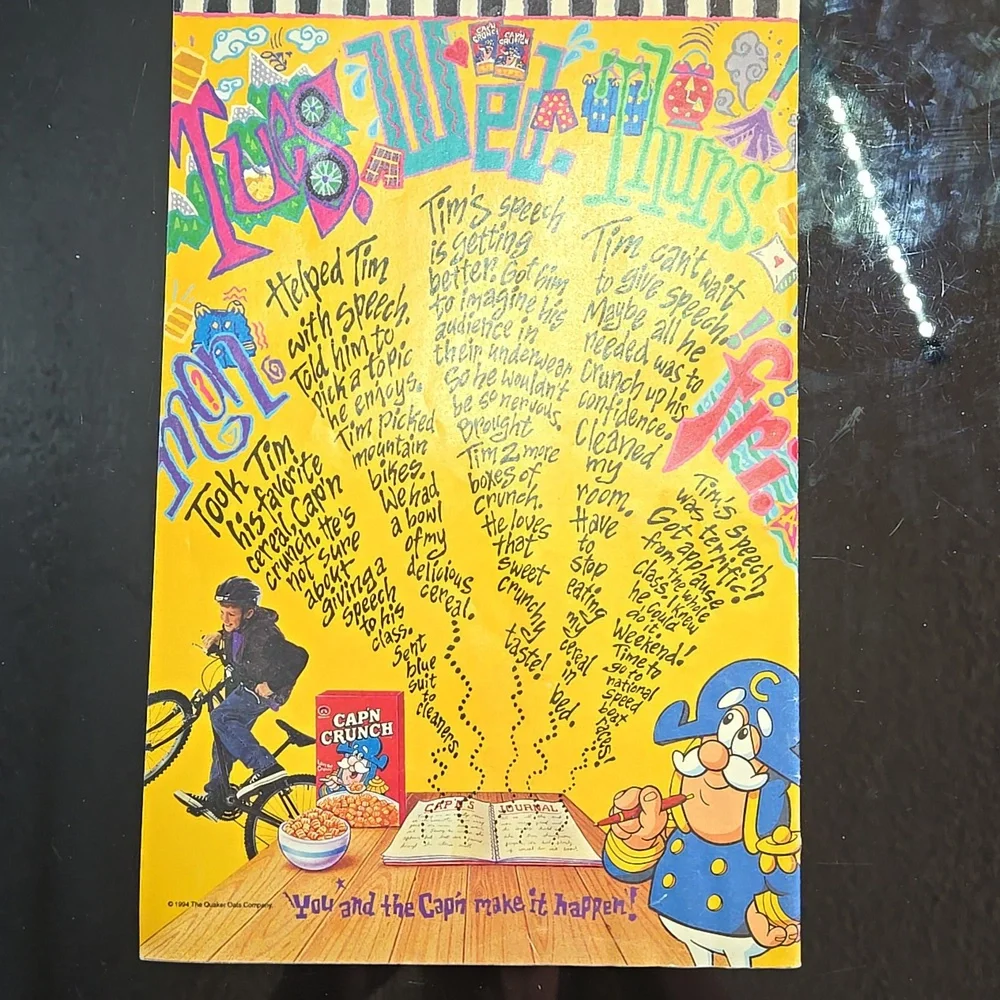 Mon.
Took Tim
his favorite
cereal, Cap'n
Crunch. He's
not sure
about
giving a
speech
to his
class.
Sent
blue
suit
to
cleaners.
Tues.
Helped Tim
with speech.
Told him to
pick a topic
he enjoys.
Tim picked
mountain
bikes.
We had
a bowl
of my
delicious
cereal.
Wed.
Tim's speech
is getting
better. Got him
to imagine his
audience in
their underwear
so he wouldn't
be so nervous.
Brought
Tim 2 more
boxes of
Crunch.
He loves
that
sweet
crunchy
taste!
Thurs.
Tim can't wait
to give speech.
Maybe all he
needed was to
crunch up his
confidence.
Cleaned
my
room.
Have
to
stop
eating
my
cereal
in
bed.
Fri.
Tim's speech
was terrific!
Got applause
from the whole
class. I knew
he could
do it.
Weekend!
Time to
go to
national
speed
boat
races!
CAP'N
CRUNCH
CAP'N CRUNCH
CAP'N CRUNCH
CAP'N'S JOURNAL
C
© 1994 The Quaker Oats Company.
You and the Cap'n make it happen!